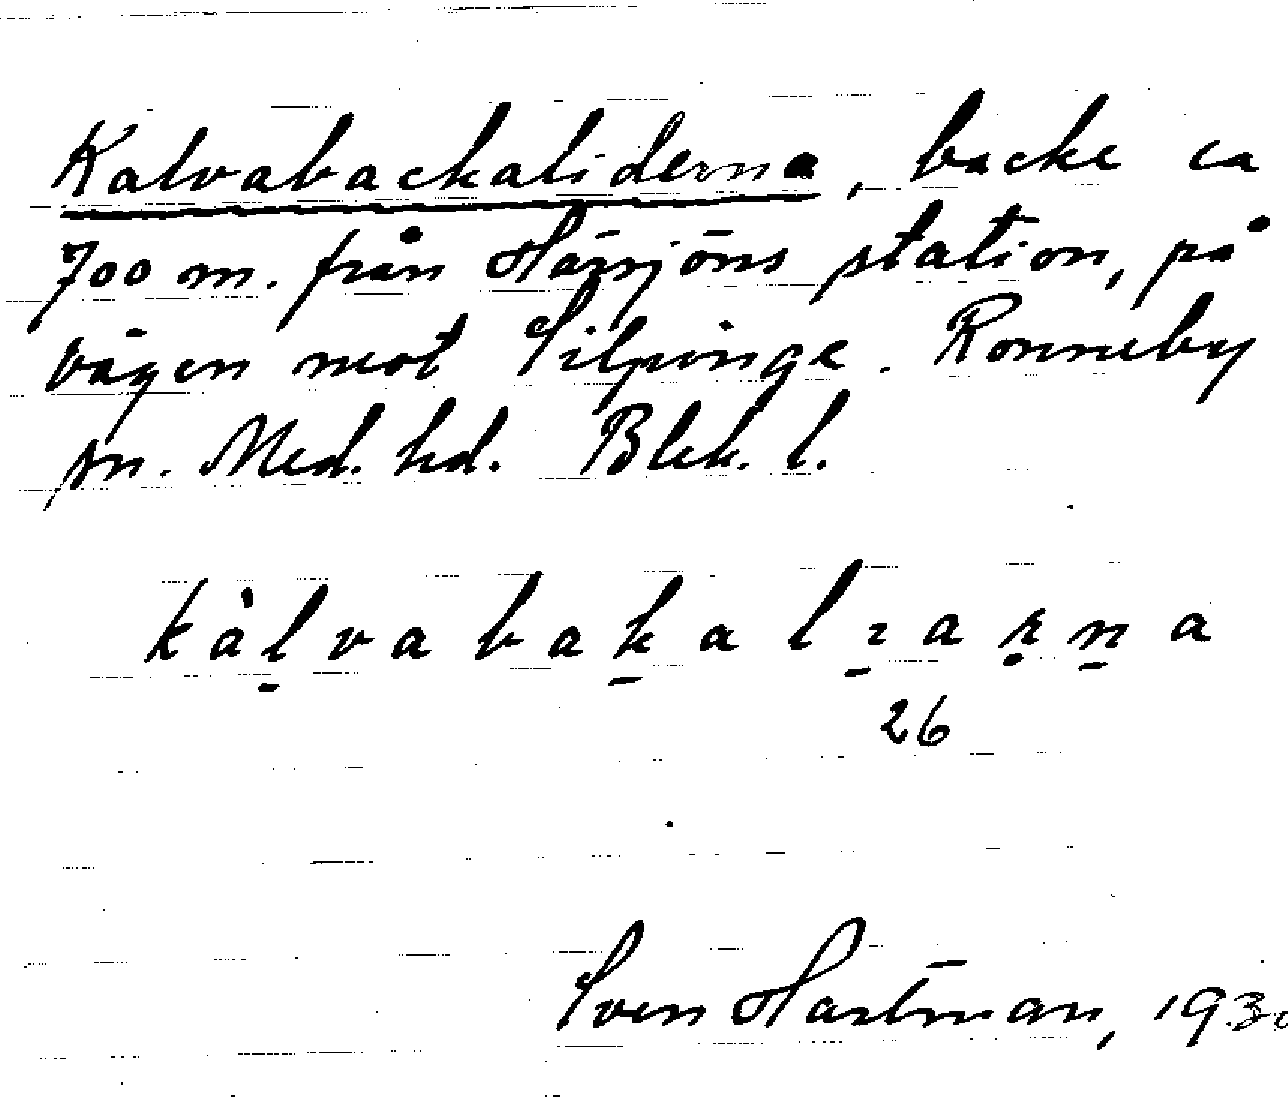 Kalvabackaliderna, backe ca
700 m. från Härsjöns station, på
vägen mot Silpinge. Ronneby
sn. Med. hd. Blek. l.
kàlvabakalıarna
26
Sven Hartman, 193